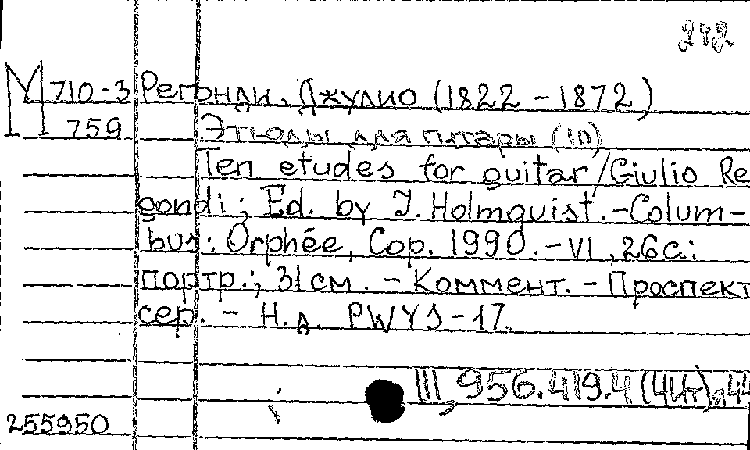 242
М 710-3 Регонди, Джулио (1822 - 1872)
759 Этюды для гитары (10)
Ten etudes for guitar / Giulio Re
gondi; Ed. by J. Holmquist. - Colum-
bus: Orphée, Cop. 1990. - VI, 26с.:
портр.; 31см. - Коммент. - Проспект
сер. - Н.д. PWYS-17.
III, 956.419.4 (4Ит)
255950